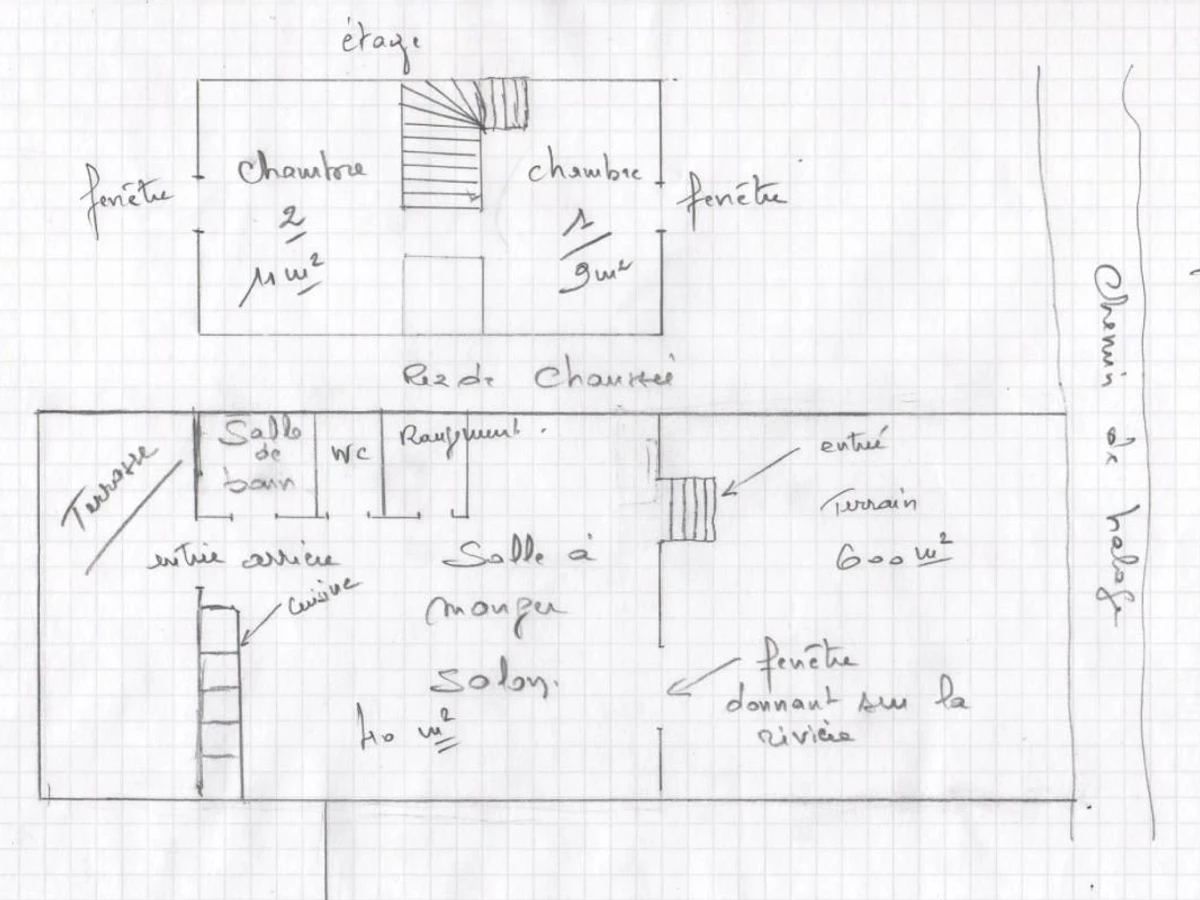 étage
fenêtre
Chambre
2
11 m²
chambre
1
9 m²
fenêtre
Rez de Chaussée
Terrasse
Salle
de
bain
WC
Rangement.
entrée
Terrain
600 m²
entrée arrière
Cuisine
Salle à
manger
Salon.
40 m²
fenêtre
donnant sur la
rivière
Chemin de halage